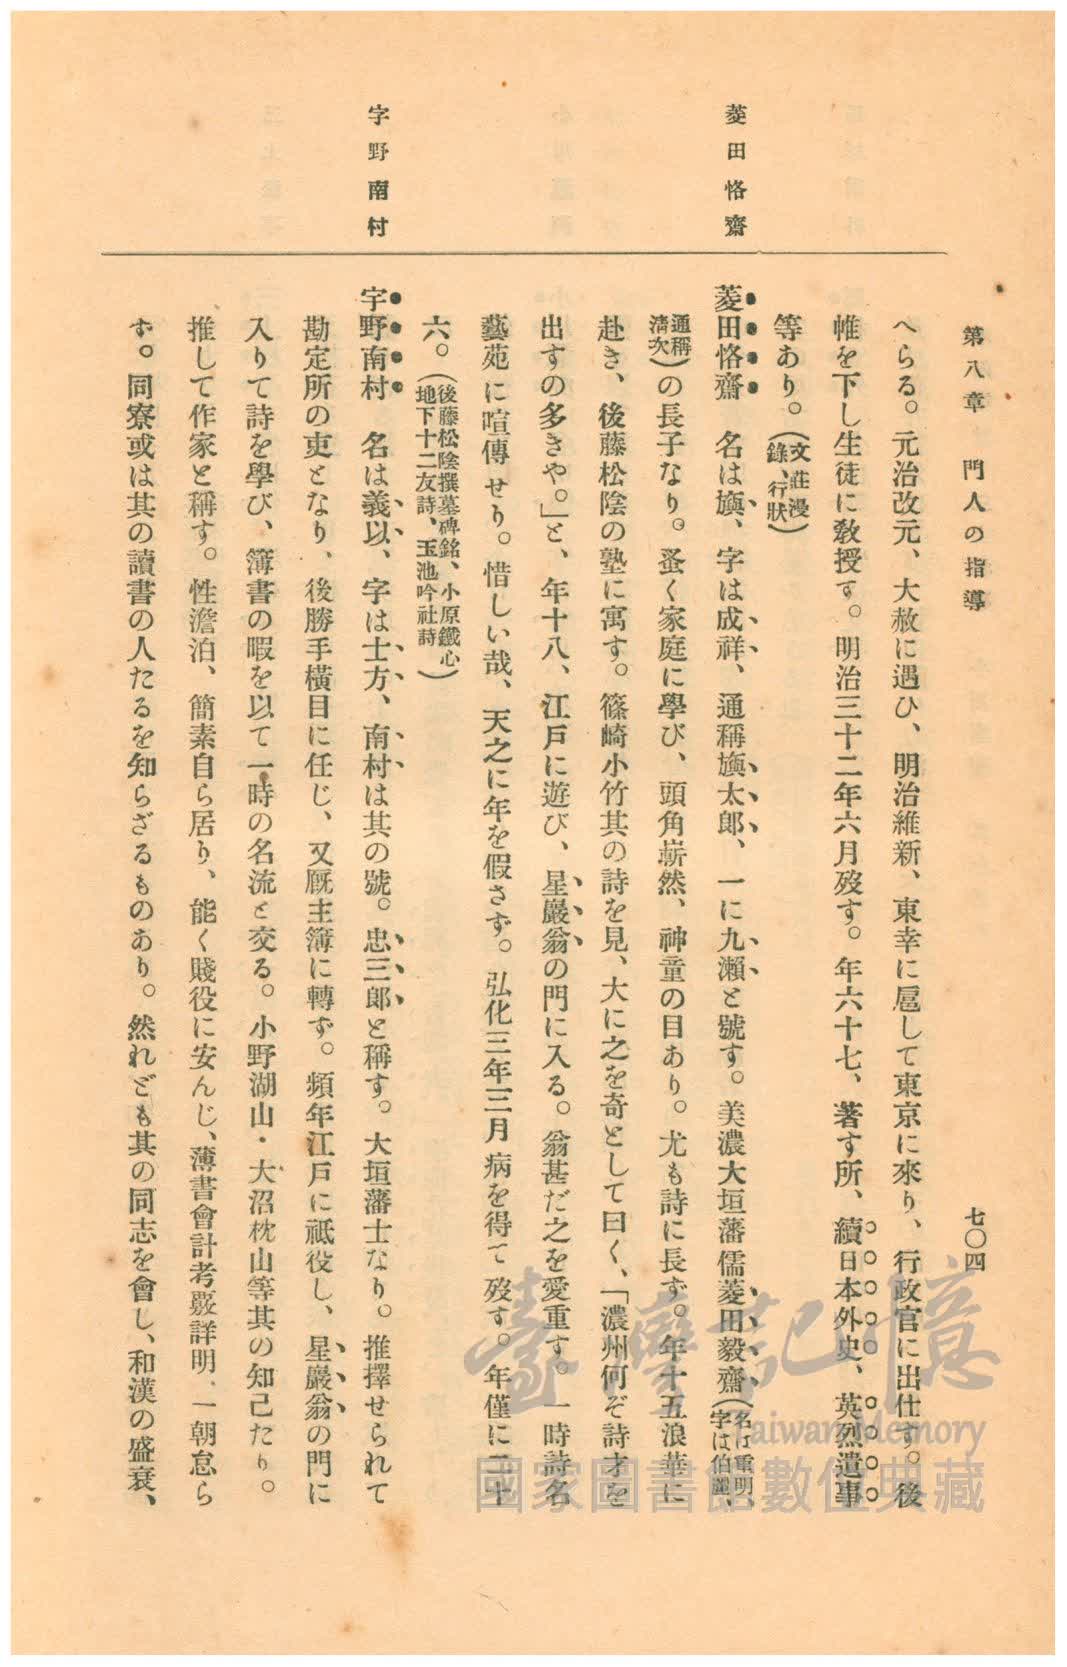 第八章 門人の指導
七〇四
へらる。元治改元、大赦に遇ひ、明治維新、東幸に扈して東京に來り、行政官に出仕す。後
帷を下し生徒に敎授す。明治三十二年六月歿す。年六十七、著す所、續日本外史、英烈遺事
等あり。(文莊漫錄、行狀)
菱田恪齋
菱田恪齋 名は旟、字は成祥、通稱旟太郎、一に九瀨と號す。美濃大垣藩儒菱田毅齋(名は重明、字は伯麗、
通稱淸次)の長子なり。蚤く家庭に學び、頭角嶄然、神童の目あり。尤も詩に長ず。年十五浪華に
赴き、後藤松陰の塾に寓す。篠崎小竹其の詩を見、大に之を奇として曰く、「濃州何ぞ詩才を
出すの多きや。」と、年十八、江戶に遊び、星巖翁の門に入る。翁甚だ之を愛重す。一時詩名
藝苑に喧傳せり。惜しい哉、天之に年を假さず。弘化三年三月病を得て歿す。年僅に二十
六。(後藤松陰撰墓碑銘、小原鐵心地下十二友詩、玉池吟社詩)
宇野南村
宇野南村 名は義以、字は士方、南村は其の號。忠三郎と稱す。大垣藩士なり。推擇せられて
勘定所の吏となり、後勝手橫目に任じ、又厩主簿に轉ず。頻年江戶に祗役し、星巖翁の門に
入りて詩を學び、簿書の暇を以て一時の名流と交る。小野湖山・大沼枕山等其の知己たり。
推して作家と稱す。性澹泊、簡素自ら居り、能く賤役に安んじ、薄書會計考覈詳明、一朝怠ら
ず。同寮或は其の讀書の人たるを知らざるものあり。然れども其の同志を會し、和漢の盛衰、
臺灣記憶
Taiwan Memory
國家圖書館數位典藏